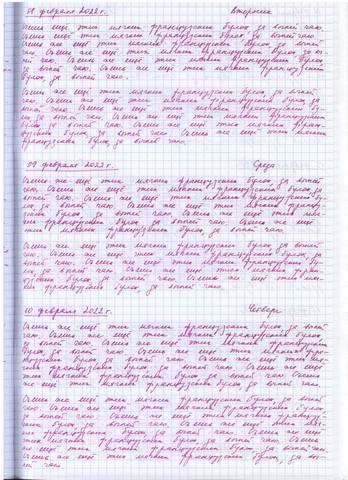 08 февраля 2022 г. Вторник
Съешь ещё этих мягких французских булок да выпей чаю.
Съешь ещё этих мягких французских булок да выпей чаю.
Съешь же ещё этих мягких французских булок да выпей
чаю. Съешь же ещё этих мягких французских булок да вы-
пей чаю. Съешь же ещё этих мягких французских булок
да выпей чаю. Съешь же ещё этих мягких французских
булок да выпей чаю.
Съешь же ещё этих мягких французских булок да выпей
чаю. Съешь же ещё этих мягких французских булок да
выпей чаю. Съешь же ещё этих мягких французских бу-
лок да выпей чаю. Съешь же ещё этих мягких французских
булок да выпей чаю. Съешь же ещё этих мягких фран-
цузских булок да выпей чаю. Съешь же ещё этих мягких
французских булок да выпей чаю.
09 февраля 2022 г. Среда
Съешь же ещё этих мягких французских булок да выпей
чаю. Съешь же ещё этих мягких французских булок да
выпей чаю. Съешь же ещё этих мягких французских бу-
лок да выпей чаю. Съешь же ещё этих мягких француз-
ских булок да выпей чаю. Съешь же ещё этих мяг-
ких французских булок да выпей чаю. Съешь же ещё
этих мягких французских булок да выпей чаю.
Съешь же ещё этих мягких французских булок да выпей
чаю. Съешь же ещё этих мягких французских булок да
выпей чаю. Съешь же ещё этих мягких французских бу-
лок да выпей чаю. Съешь же ещё этих мягких фран-
цузских булок да выпей чаю. Съешь же ещё этих мяг-
ких французских булок да выпей чаю.
10 февраля 2022 г. Четверг
Съешь же ещё этих мягких французских булок да выпей
чаю. Съешь же ещё этих мягких французских булок
да выпей чаю. Съешь же ещё этих мягких французских
булок да выпей чаю. Съешь же ещё этих мягких фран-
цузских булок да выпей чаю. Съешь же ещё этих мяг-
ких французских булок да выпей чаю. Съешь же ещё
этих мягких французских булок да выпей чаю. Съешь
же ещё этих мягких французских булок да выпей чаю.
Съешь же ещё этих мягких французских булок да выпей
чаю. Съешь же ещё этих мягких французских булок
да выпей чаю. Съешь же ещё этих мягких француз-
ских булок да выпей чаю. Съешь же ещё этих мяг-
ких французских булок да выпей чаю. Съешь же ещё
этих мягких французских булок да выпей чаю. Съешь
же ещё этих мягких французских булок да выпей чаю.
Съешь же ещё этих мягких французских булок да вы-
пей чаю.